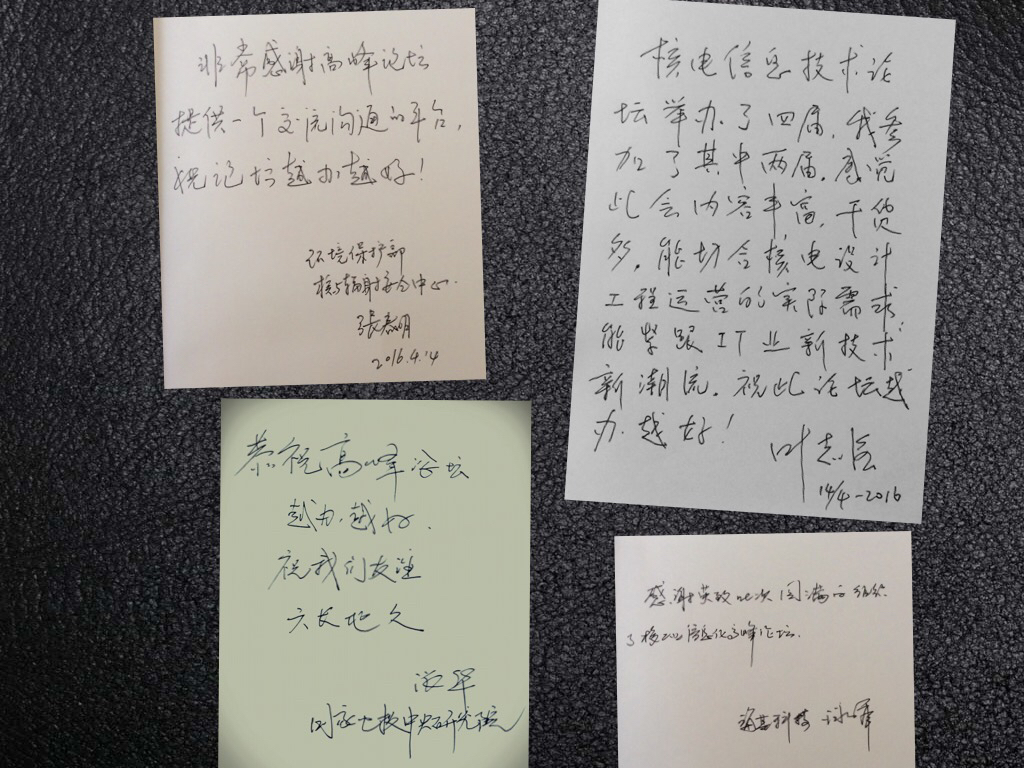 非常感谢高峰论坛
提供一个交流沟通的平台，
祝论坛越办越好！
环境保护部
核与辐射安全中心
張春明
2016.4.14
核电信息技术论
坛举办了四届，我参
加了其中两届，感觉
此会内容丰富，干货
多，能切合核电设计
工程运营的实际需求
能紧跟IT业新技术
新潮流。祝此论坛越
办越好！
叶志
14/4-2016
恭祝高峰论坛
越办越好.
祝我们友谊
天长地久
国家电投中央研究院
感谢 此次圆满 组织
了核工业信息化高峰论坛.
科技